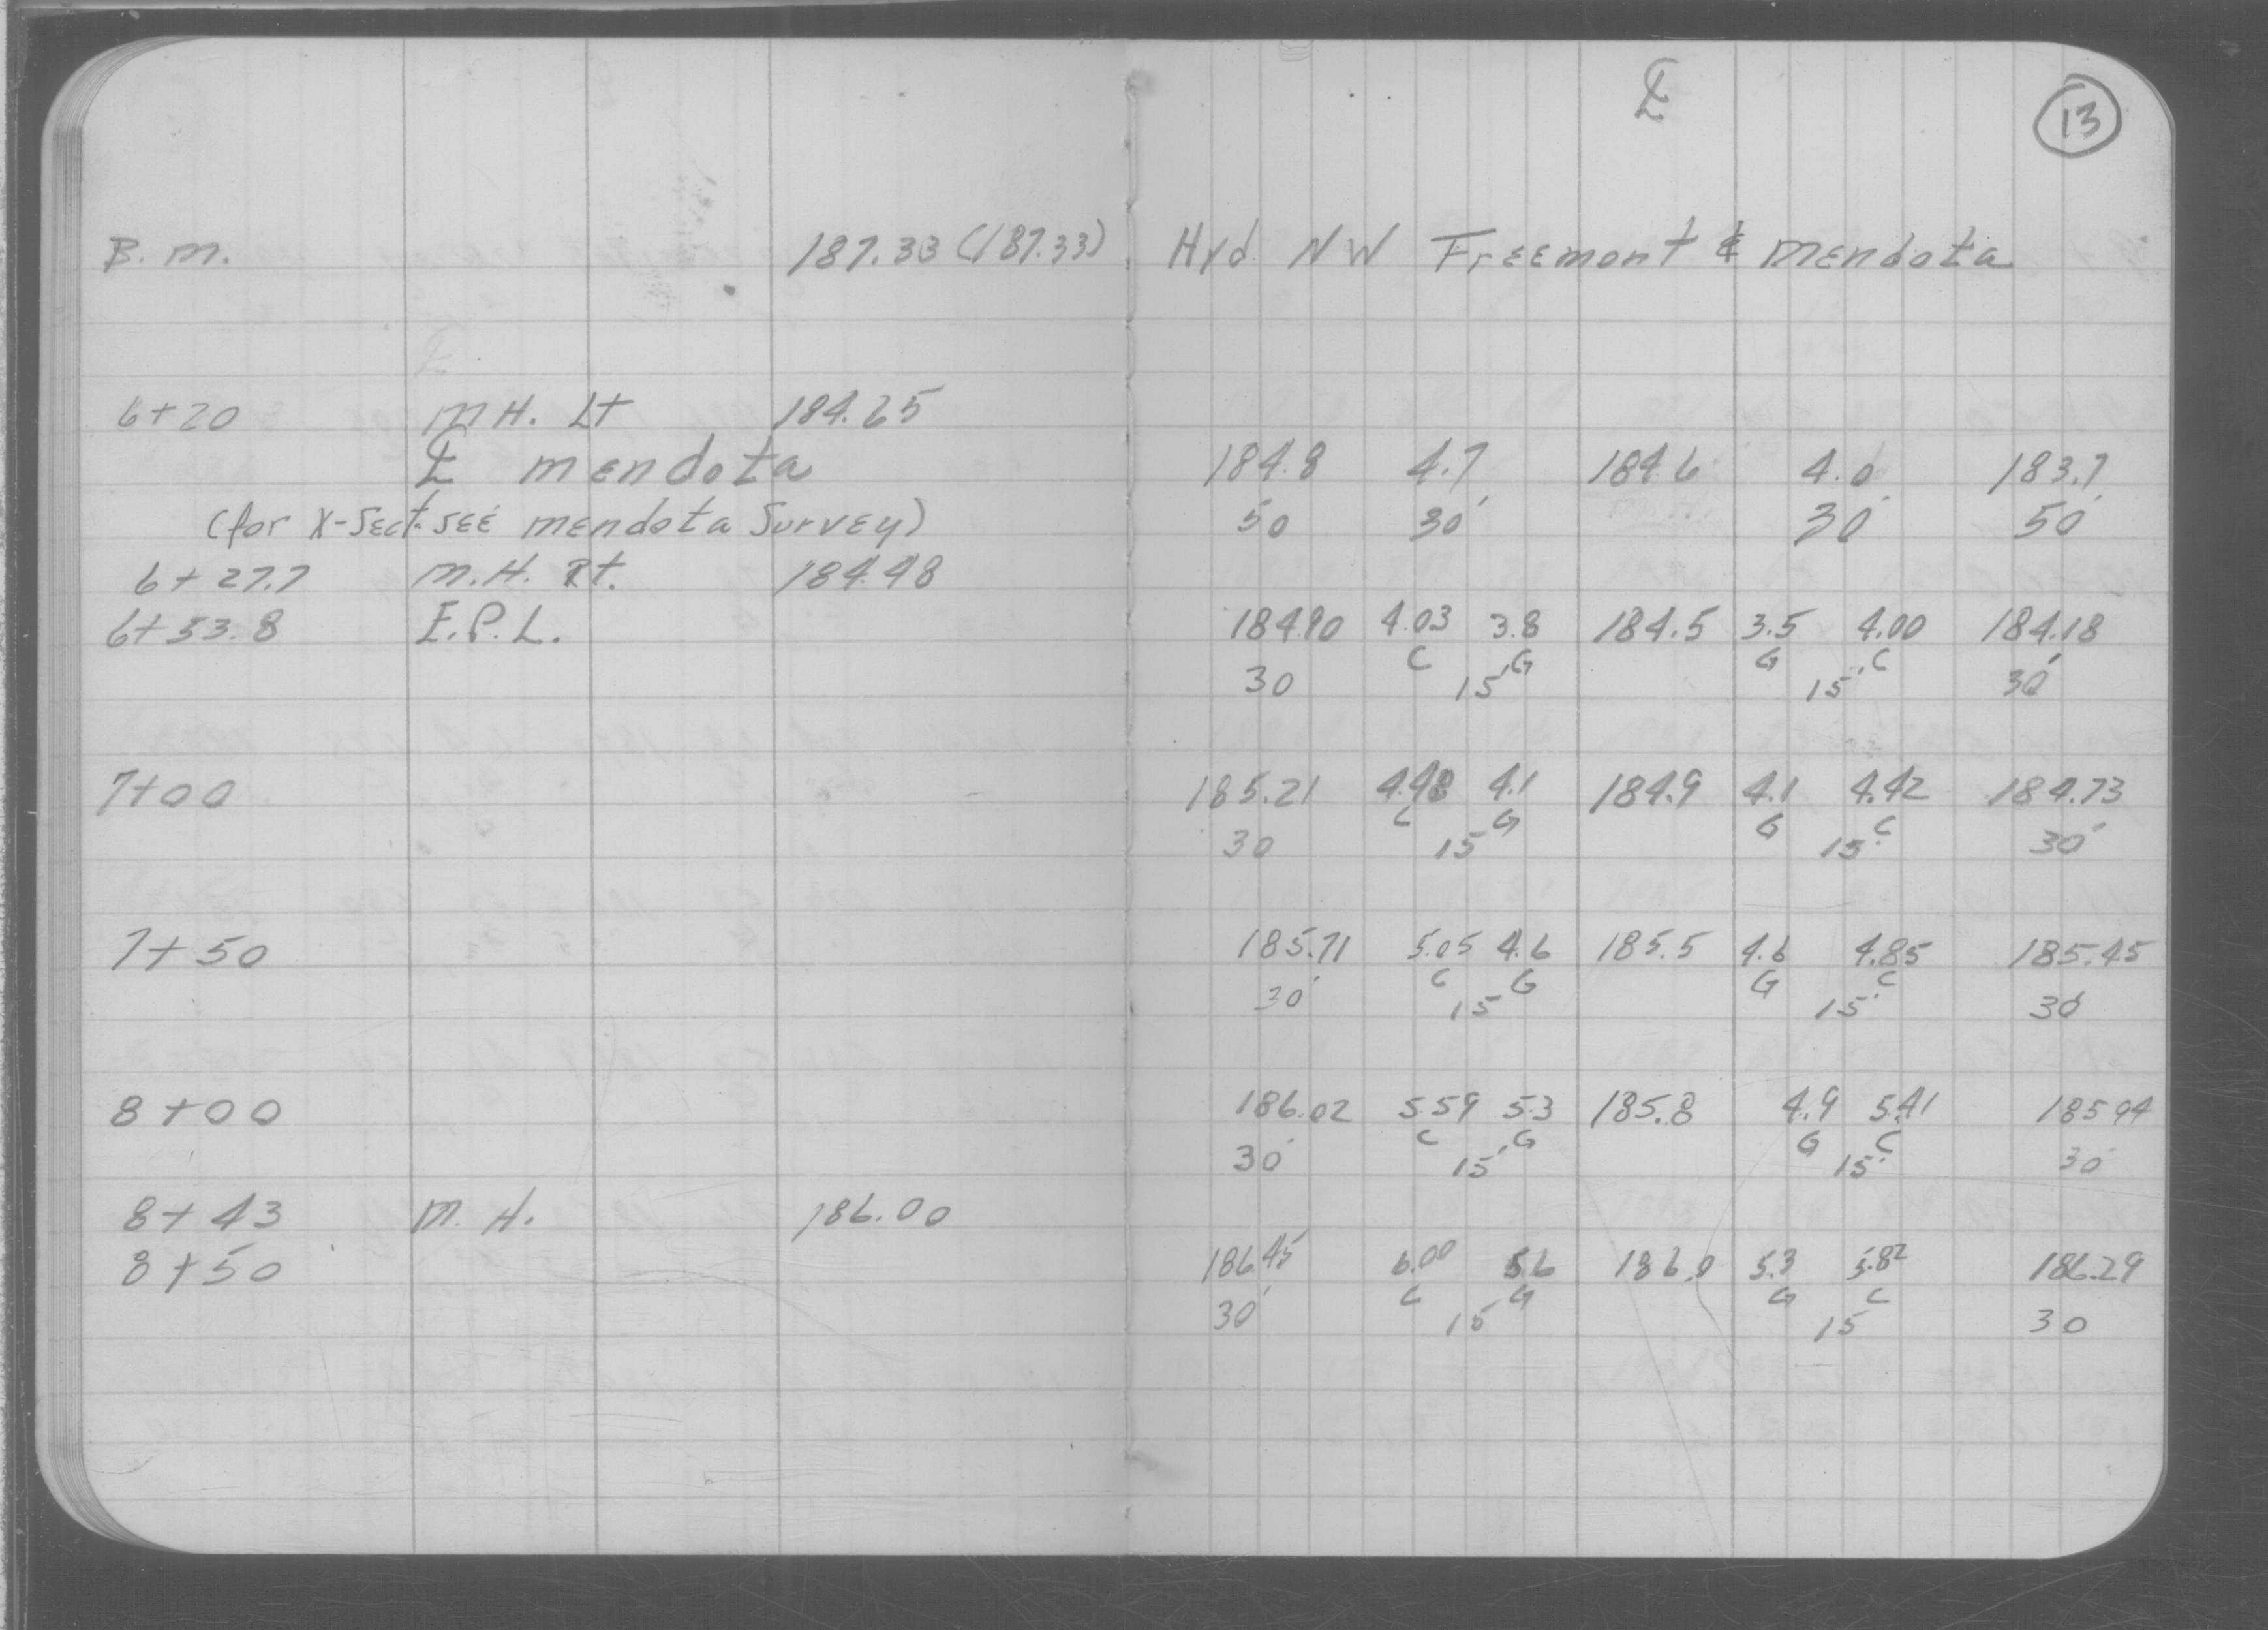 ℄ 13
B.M. 187.33 (187.33) Hyd NW Freemont & Mendota
6+20 M.H. Lt 184.65
℄ Mendota 184.8 4.7 184.6 4.0 183.7
(for X-Sect. see Mendota Survey) 50 30' 30' 50'
6+27.7 M.H. Rt. 184.48
6+53.8 E.P.L. 184.90 4.03 3.8 184.5 3.5 4.00 184.18
C G G C
30 15' 15' 30'
7+00 185.21 4.48 4.1 184.9 4.1 4.42 184.73
C G G C
30 15 15' 30'
7+50 185.71 5.05 4.6 185.5 4.6 4.85 185.45
C G G C
30' 15 15' 30'
8+00 186.02 5.59 5.3 185.8 4.9 5.41 185.94
C G G C
30' 15' 15' 30'
8+43 M.H. 186.00
8+50 186.45 6.00 5.6 186.0 5.3 5.82 186.29
C G G C
30' 15 15 30